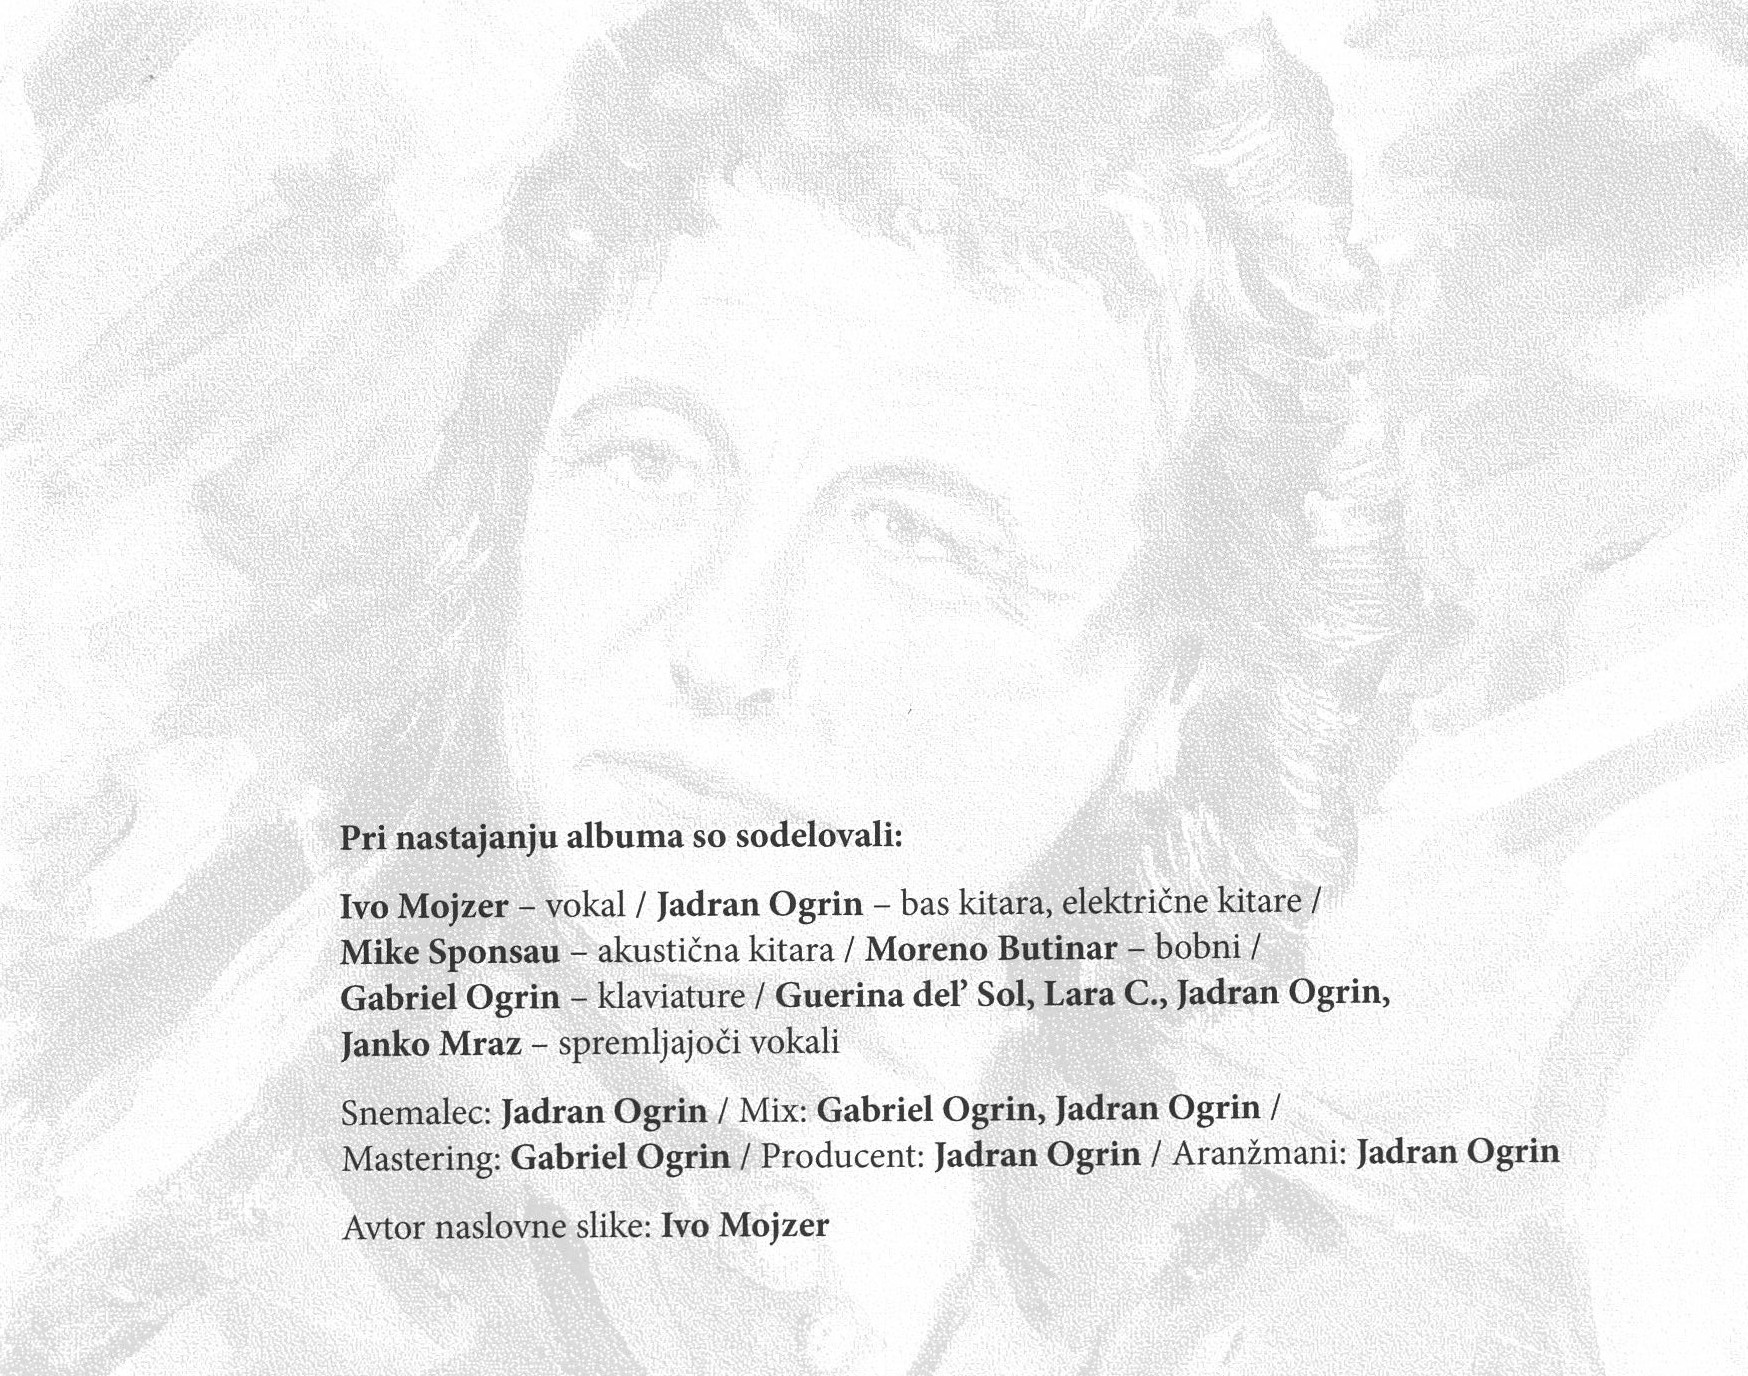 Pri nastajanju albuma so sodelovali:
Ivo Mojzer – vokal / Jadran Ogrin – bas kitara, električne kitare /
Mike Sponsau – akustična kitara / Moreno Butinar – bobni /
Gabriel Ogrin – klaviature / Guerina del’ Sol, Lara C., Jadran Ogrin,
Janko Mraz – spremljajoči vokali
Snemalec: Jadran Ogrin / Mix: Gabriel Ogrin, Jadran Ogrin /
Mastering: Gabriel Ogrin / Producent: Jadran Ogrin / Aranžmani: Jadran Ogrin
Avtor naslovne slike: Ivo Mojzer